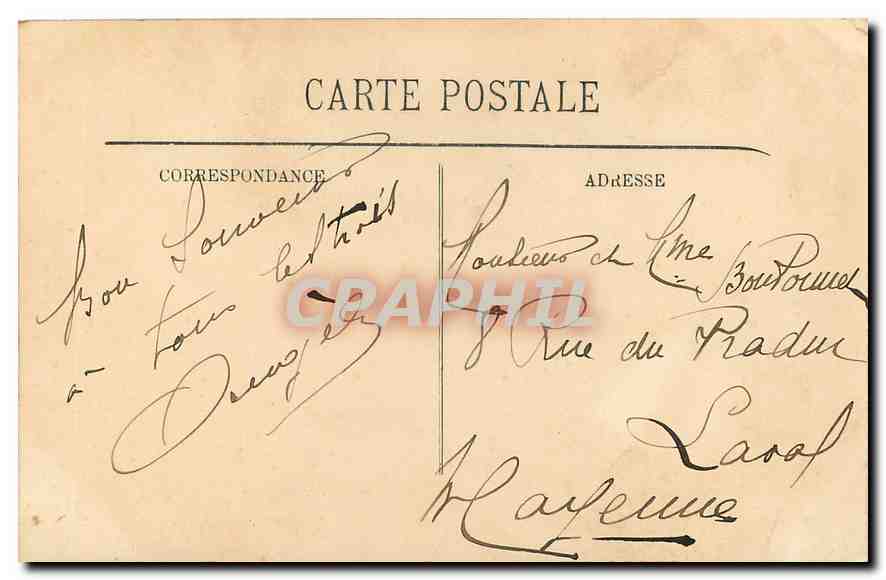 CARTE POSTALE
CORRESPONDANCE
Bon Souvenir
à tous les trois
ADRESSE
Monsieur et Mme
8 Rue du
Laval
Mayenne
CPAPHIL